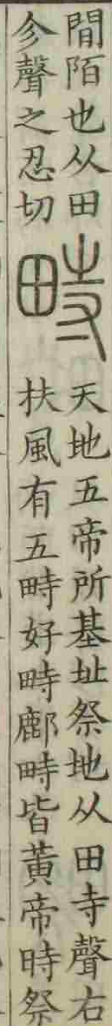 間陌也从田
㐱聲之忍切
畤
天地五帝所基址祭地从田寺聲右
扶風有五畤好畤鄜畤皆黃帝時祭